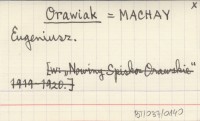 x
Orawiak = MACHAY
Eugeniusz.
[w: „Nowiny Spisko Orawskie"
1919-1920.]
BJ/083/0140